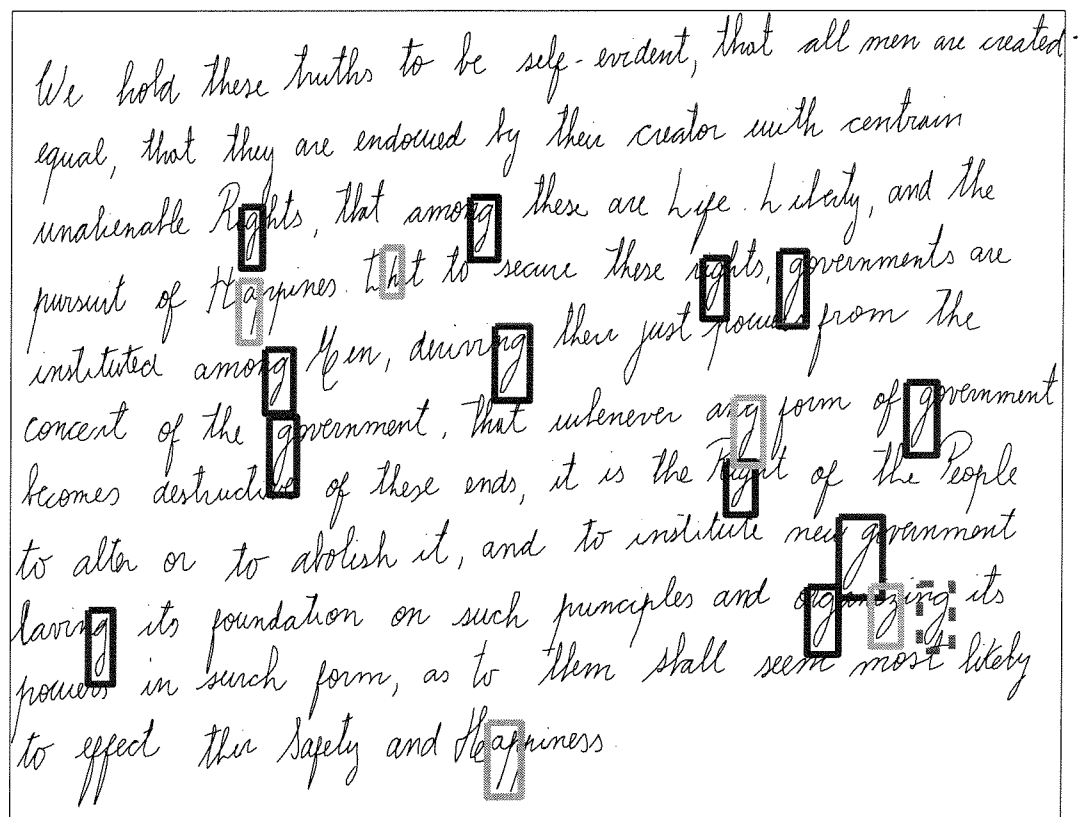 We hold these truths to be self-evident, that all men are created
equal, that they are endowed by their creator with centrain
unalienable Rights, that among these are Life. Liberty, and the
pursuit of Happines. that to secure these rights, governments are
instituted among Men, deriving their just powers from the
concent of the government, that whenever any form of government
becomes destructive of these ends, it is the Right of the People
to alter or to abolish it, and to institute new government
laving its foundation on such principles and organizing its
powers in such form, as to them shall seem most likely
to effect thir Safety and Happiness.